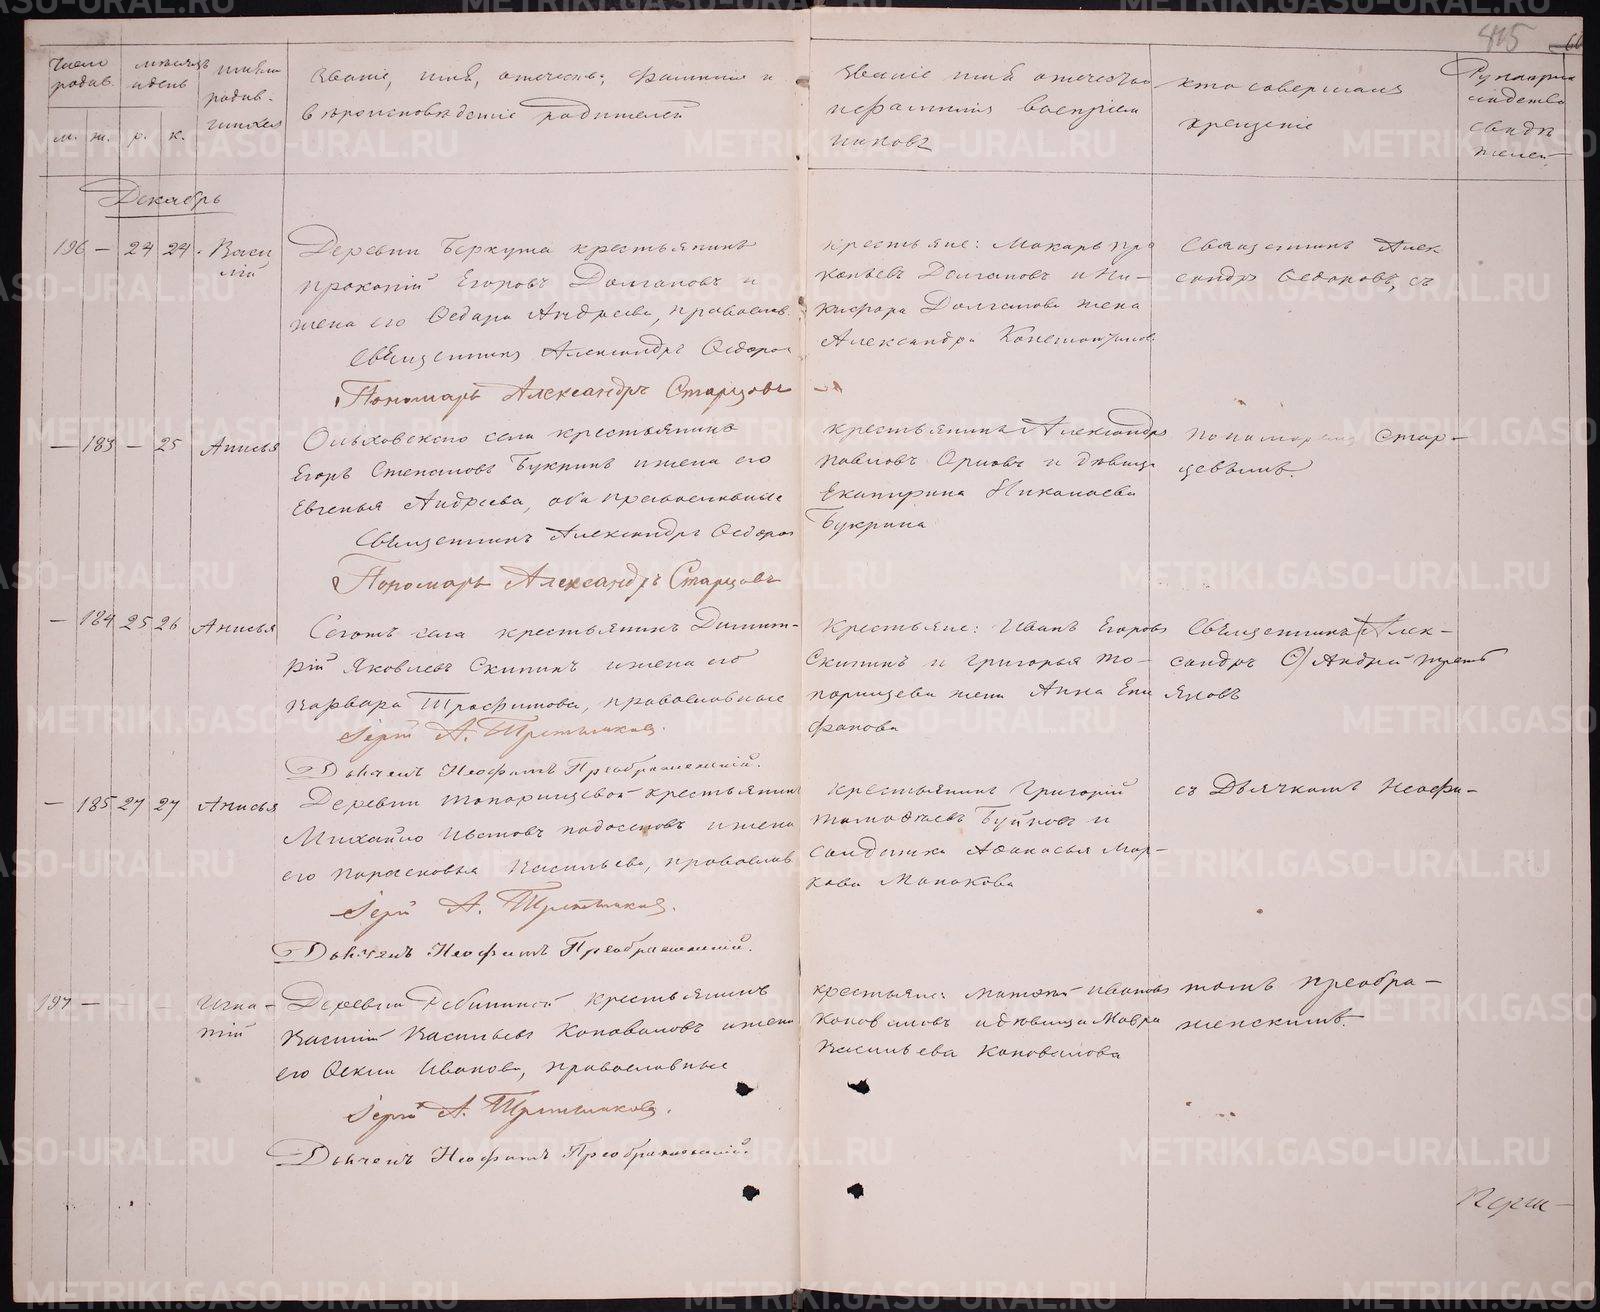 415
Число родив.
м. ж.
мѣсяцъ и день
р. к.
имена родив-
шихся
Званіе, имя, отечество, фамилия и
вѣроисповѣдение родителей
Званіе имя отечество
и фамилия воспріем
никовъ
кто совершалъ
крещеніе
свидѣ
телей
Декабрь
196 — 24 24 Васи
лій
Деревни Беркута крестьянинъ
Прокопій Егоровъ Долгановъ и
жена его Ѳедора Андреева, православ.
Священникъ Александръ Ѳедоров
Пономарь Александръ Старцовъ
крестьяне: Макаръ Про
копьевъ Долгановъ и Ни-
кифора Долганова жена
Александра Константинов
Священникъ Алек
сандръ Ѳедоровъ, съ
— 183 — 25 Анисья
Ольховскаго села крестьянинъ
Егоръ Степановъ Букринъ и жена его
Евгенья Андреева, оба православные
Священникъ Александръ Ѳедоров
Пономарь Александръ Старцовъ
крестьянинъ Александръ
Павловъ Орловъ и дѣвица
Екатерина Николаева
Букрина
пономаремъ Стар-
цевымъ.
— 184 25 26 Анисья
Сегожъ села крестьянинъ Димит-
рій Яковлевъ Скипинъ и жена его
Варвара Трофимова, православные
Іерей А. Третьяковъ.
Дьячекъ Неофитъ Преображенскій.
Крестьяне: Иванъ Егоровъ
Скипинъ и Григорья То-
порищева жена Анна Епи
фанова
Священникъ Алек-
сандръ Андрей Трет
яковъ
— 185 27 27 Анисья
Деревни Топорищевой крестьянинъ
Михайло Ивановъ Подосеновъ и жена
его Парасковья Васильева, православ.
Іерей А. Третьяковъ.
Дьячекъ Неофитъ Преображенскій.
крестьянинъ Григорій
Тимофѣевъ Буйновъ и
солдатка Афанасья Мар-
кова Манакова
съ Дьячкомъ Неофи-
197 — Игна-
тій
Деревни Рябининой крестьянинъ
Василій Васильевъ Коноваловъ и жена
его Ѳекла Иванова, православные
Іерей А. Третьяковъ.
Дьячекъ Неофитъ Преображенскій.
крестьяне: Матвей Ивановъ
Коноваловъ и дѣвица Мавра
Васильева Коновалова
томъ Преобра-
женскимъ.